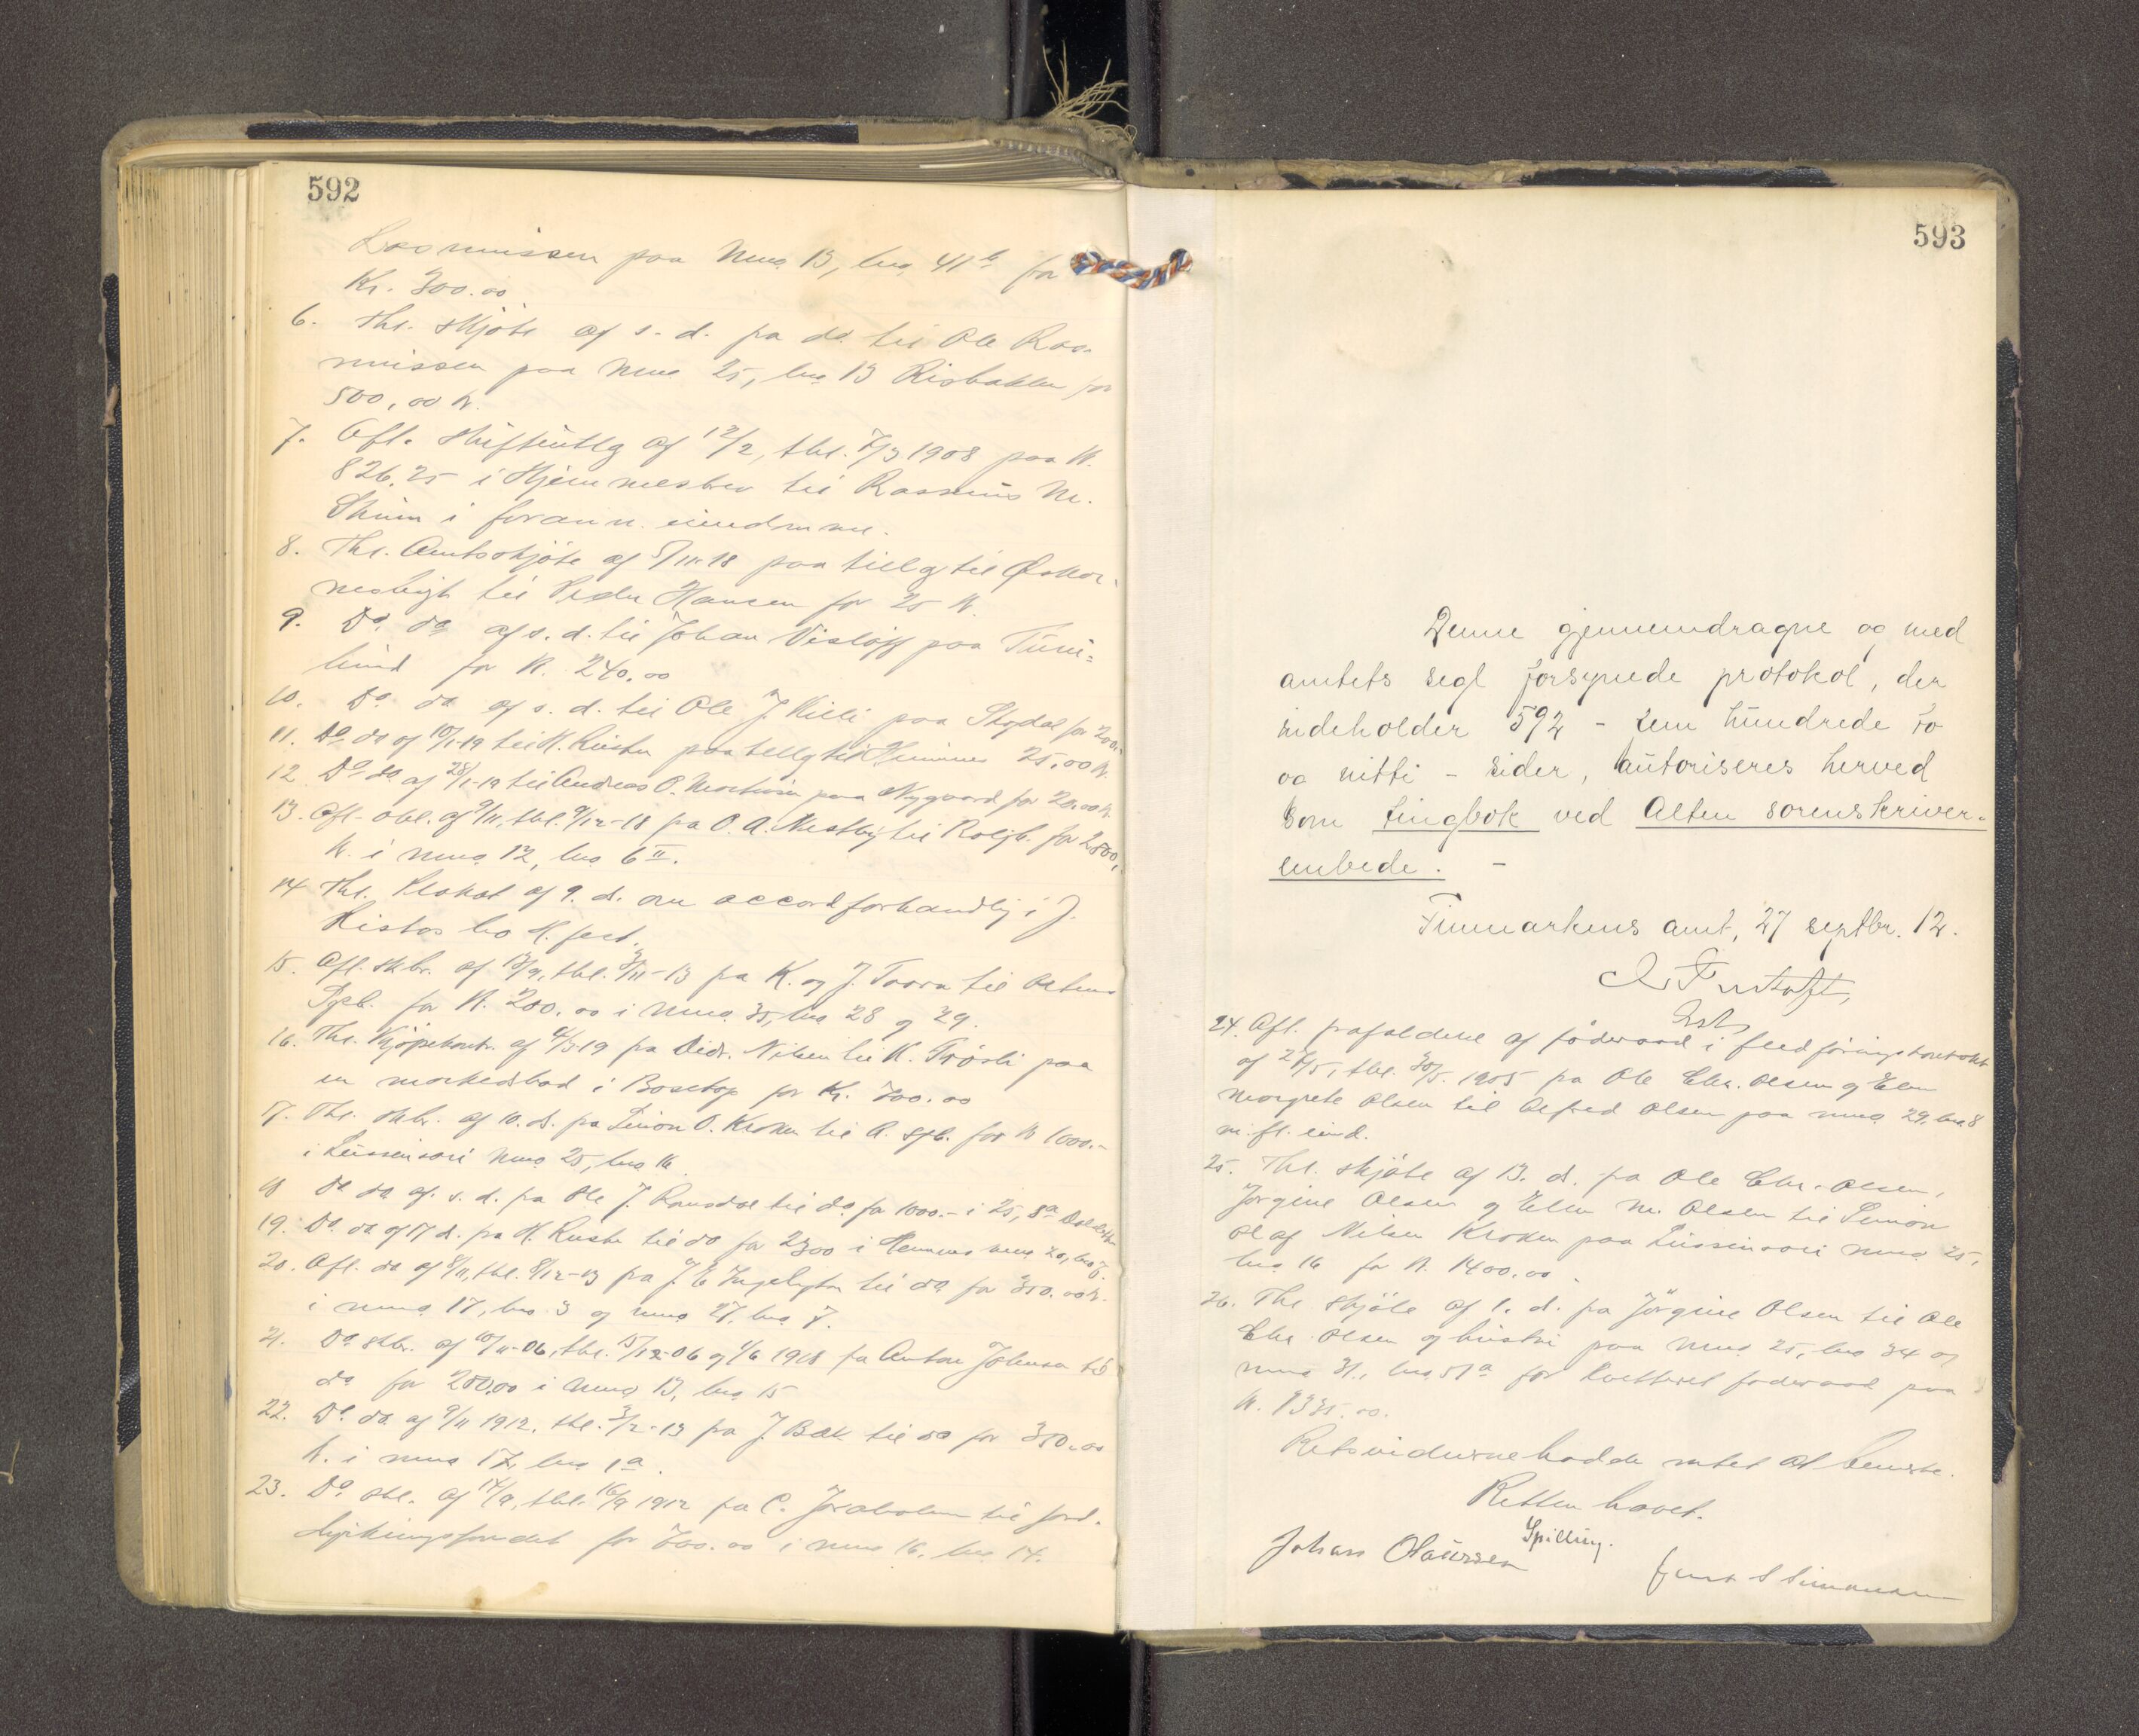 592
Rasmussen paa mno 13, bno 41b for
Kr. 300.00
6. Thl. skjøte af s. d. fra do. til Ole Ras-
mussen paa mno 25, bno 13 Risbakken for
500,00 kr.
7. Afl. skifteutlg af 12/2, thl. 7/3 1908 paa kr.
826.25 i Hjemmesbrev til Rasmus M.
i forann. eiendomme.
8. Thl. Amtsskjøte af 5/11-18 paa tillg til
til Peder Hansen for 25 kr.
9. Do. do af s. d. til Johan Visløff paa
lund for kr. 240.00
10. Do do af s. d. til Ole J. Kiili paa Skogdal for 200.-
11. Do do af 10/1-19 til H. Ruste paa tillg til Hemmes 25,00 kr.
12. Do do af 28/1-19 til Andreas O. Mortensen paa Nygaard for 20,00 kr.
13. Afl. obl. af 9/11, thl. 9/12-18 fra O. A. Mestby til for 2800,
kr. i mno 12, bno 6 II.
14. Thl. af 9. d. om accordforhandlig i J.
Kistos bo H.fest.
15. Afl. skbr. af 13/9, thl. 3/11-13 fra K. og J. Taara til Altens
Spb. for kr. 200.00 i mno. 35, bno 28 og 29.
16. Thl. Kjøpekontr. af 4/3-19 fra Didr. Nilsen til K. Trøsli paa
en markedsbod i Bosekop for Kr. 700.00
17. Thl. skbr. af 10. d. fra Simon O. Kroken til A. Spb. for kr 1000.-
i mno 25, bno 16.
18. Do do af. s. d. fra Ole J. Romsdal til do for 1000.- i 25, 8a
19. Do. do af 17 d. fra H. Ruste til do for 2300 i Hemmes mno 20, bno 6.
20. Afl. do af 8/11, thl. 8/12-13 fra J. E. til do for 350.00 kr.
i mno 17, bno 3 og mno 27, bno 7.
21. Do skbr. af 10/11-06, thl. 15/12-06 og 1/6 1918 fra Anton Johnsen til
do for 200,00 i mno 13, bno 15
22. Do. do. af 9/11 1912, thl. 3/2-13 fra J. Bæk til do for 350.00
k. i mno 17, bno 1a.
23. Do obl. af 14/9, thl. 16/9 1912 fra C. til jord-
dyrkningsfondet for 700.00 i mno 16, bno 14.
593
Denne gjennemdragne og med
amtets segl forsynede protokol, der
indeholder 592 - fem hundrede to
og nitti - sider, autoriseres herved
som tingbok ved Alten sorenskriver-
embede. -
Finmarkens amt, 27 septbr. 12.
24. Afl. frafaldelse af føderaad i fledføringskontrakt
af 27/5, thl. 30/5. 1905 fra Ole Chr. Olsen og Elen
Margrete Olsen til Alfred Olsen paa mno 29, bno 8
m. fl. eiend.
25. Thl. skjøte af 13. d. fra Ole Chr. Olsen,
Jørgine Olsen og Elen M. Olsen til Simon
Olaf Nilsen Kroken paa mno 25,
bno 16 for kr. 1400.00.
26. Thl skjøte af 1. d. fra Jørgine Olsen til Ole
Chr. Olsen og hustru paa mno 25, bno 34 og
mno 31, bno 51a for kvitteret føderaad paa
kr. 1335.00.
Retsvidnerne hadde intet at bemerke.
Retten hævet.
Spilling.
Johan Olaussen